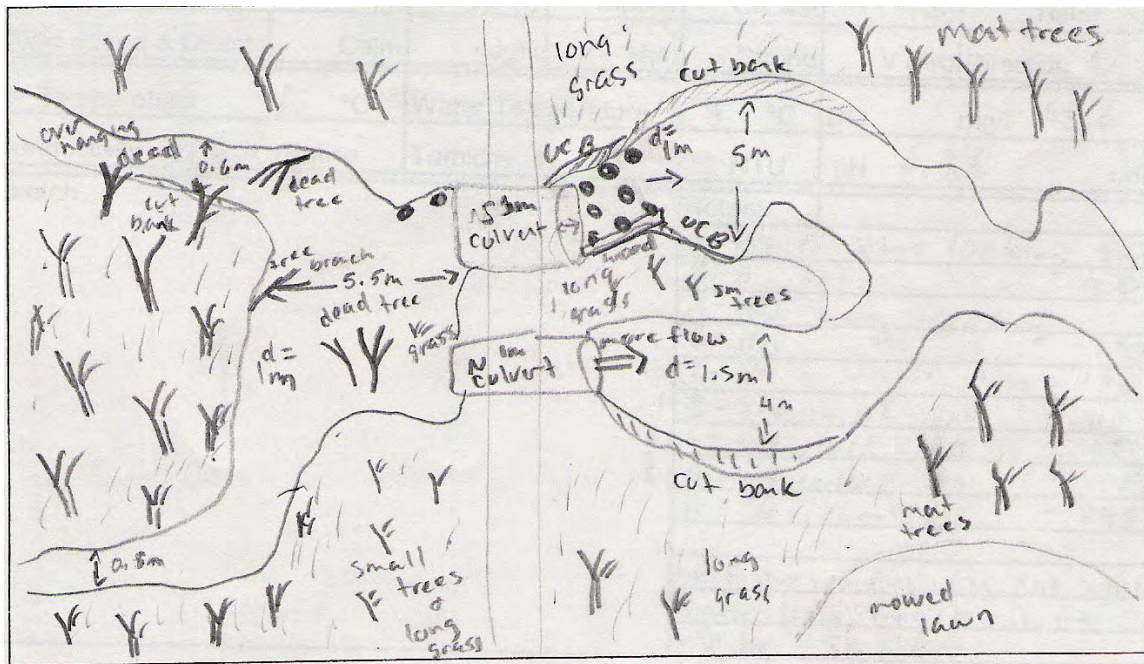 long
grass
cut bank
mat trees
over
hanging
dead
0.6m
dead
tree
cut
bank
UCB
d=
1m
5m
culvert
UCB
wood
tree branch
5.5m
dead tree
long
grass
sm
trees
grass
d=
1m
1m
culvert
more flow
d=1.5m
4m
cut bank
mat
trees
0.8m
small
trees
&
long
grass
long
grass
mowed
lawn